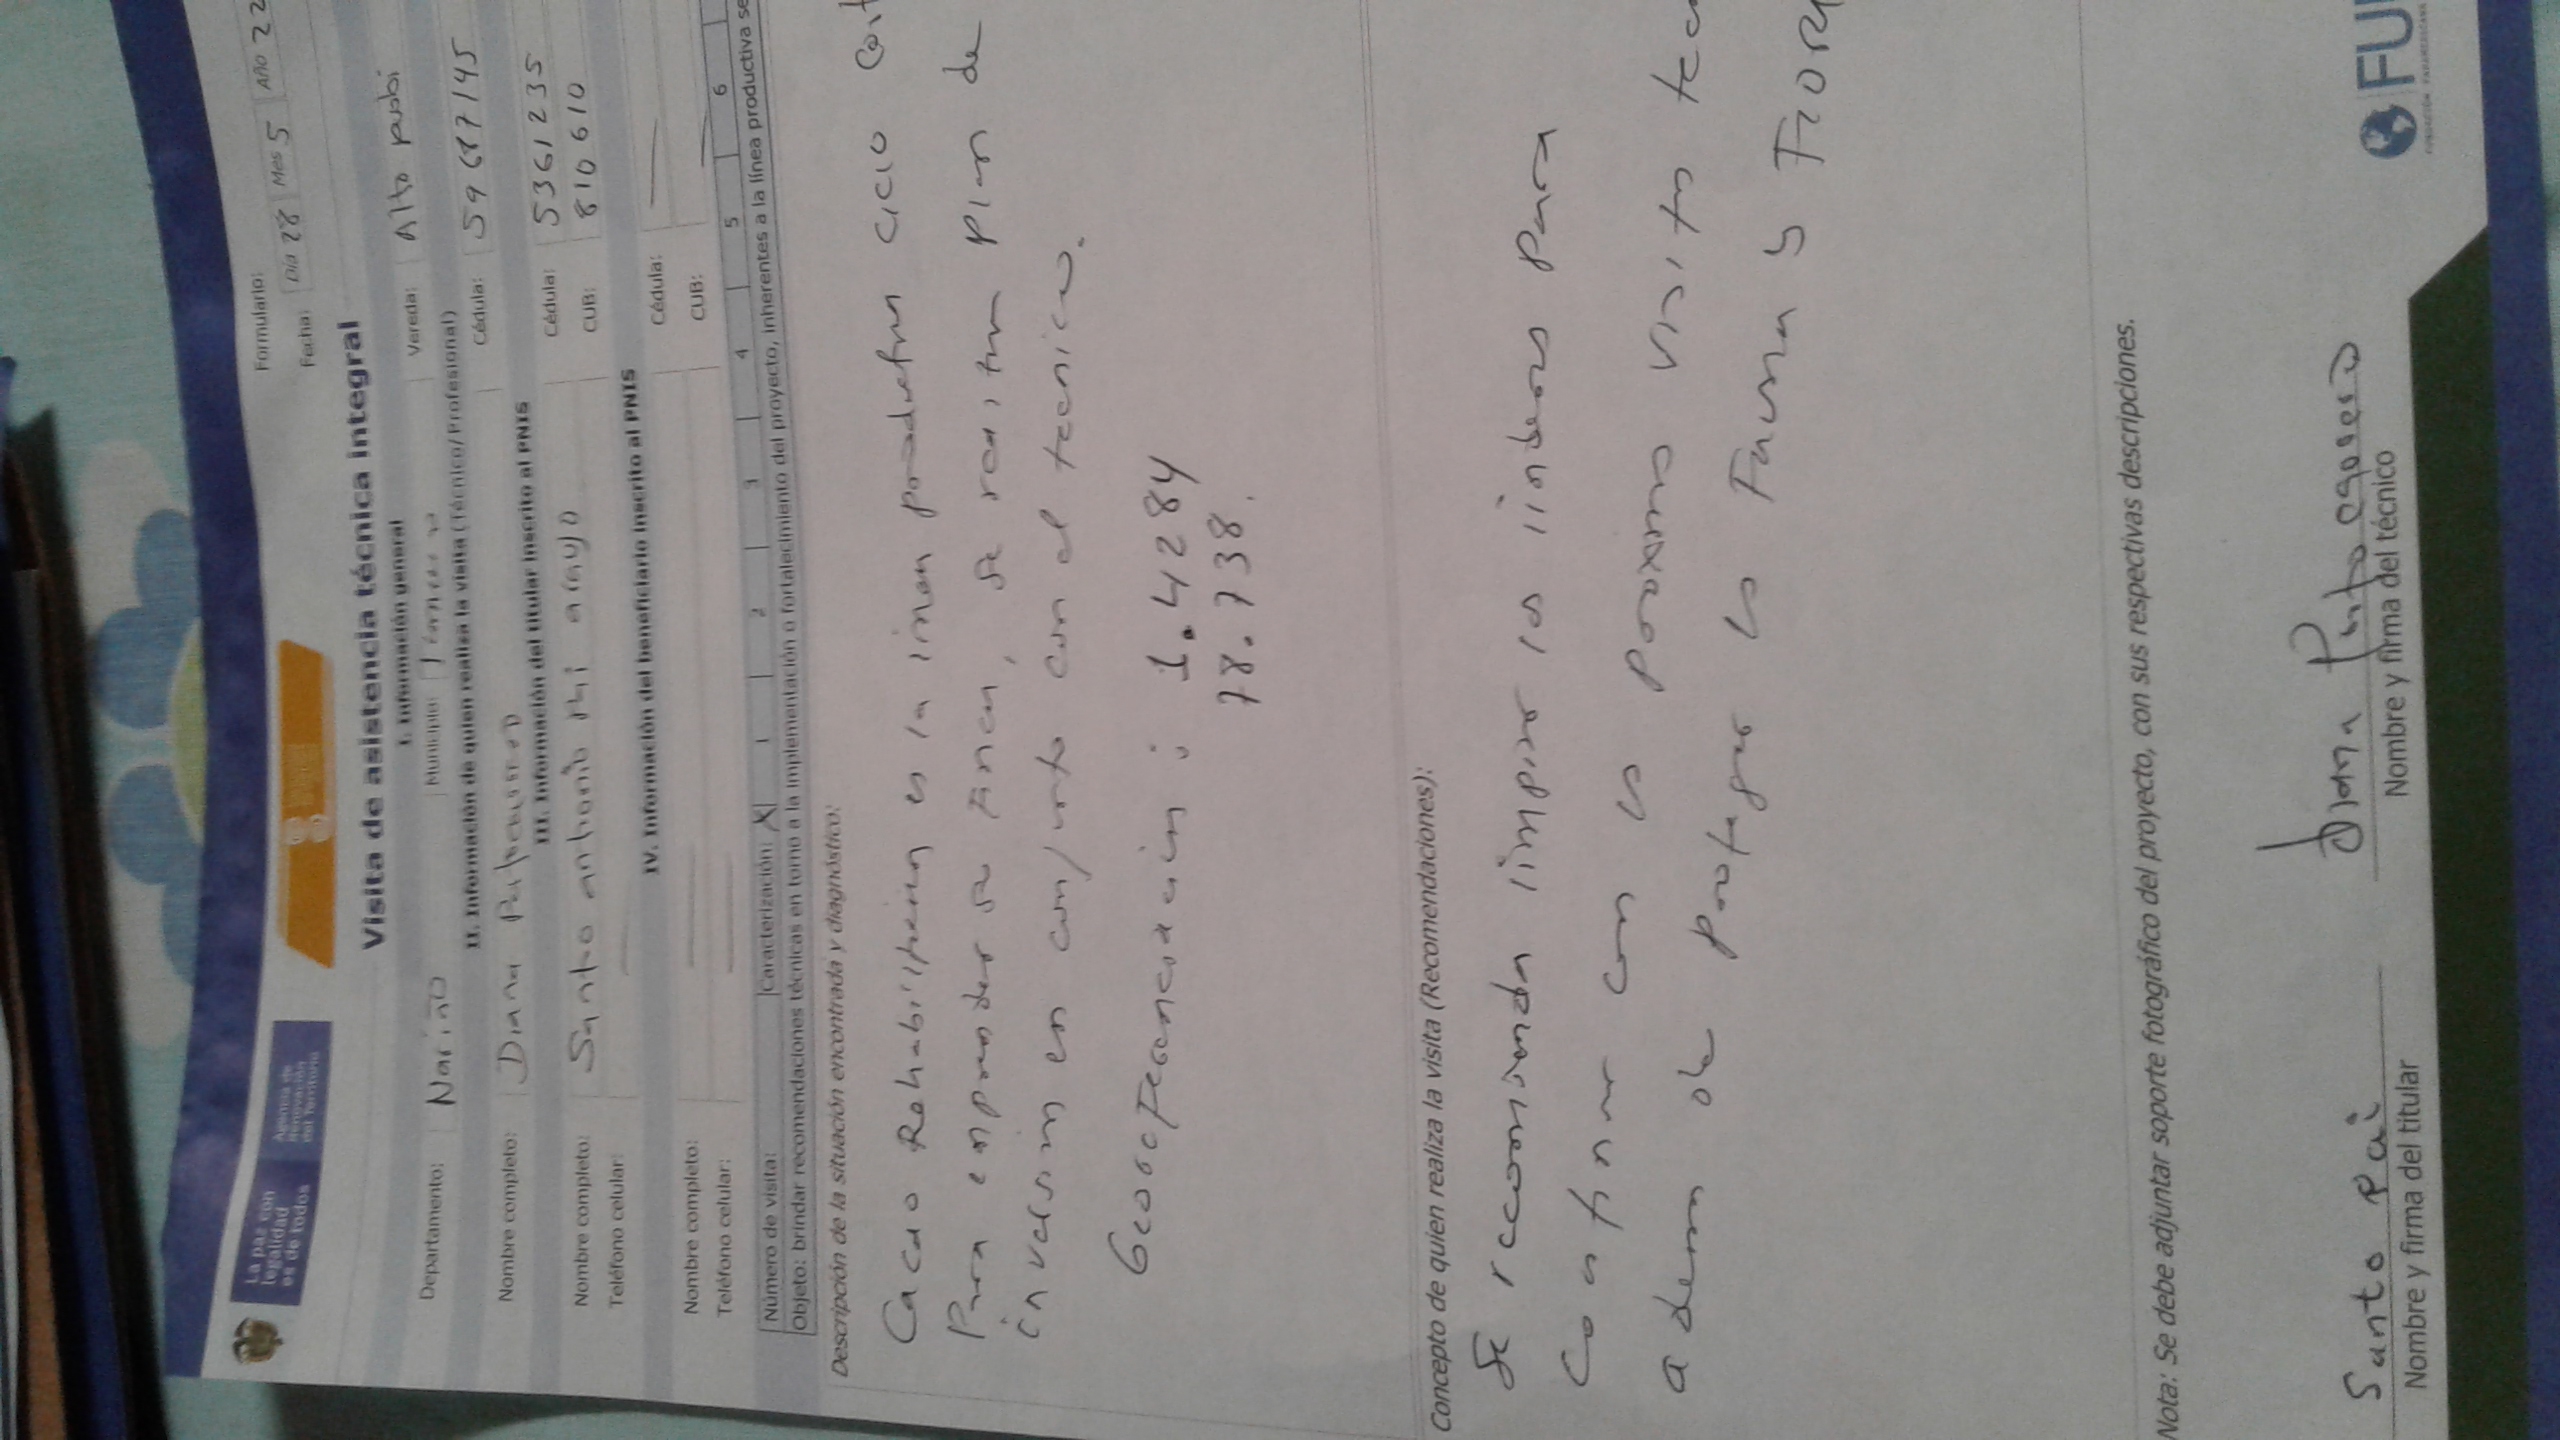 La paz con
legalidad
es de todos
Agencia de
Renovación
del Territorio
Formulario:
Fecha: Día 28 Mes 5 Año 22
Visita de asistencia técnica integral
I. Información general
Departamento: Nariño Municipio: Vereda: Alto pusbi
II. Información de quien realiza la visita (Técnico/Profesional)
Nombre completo: Diana Cédula: 59687145
III. Información del titular inscrito al PNIS
Nombre completo: Santo antonio Pai arayo Cédula: 5361235
Teléfono celular: CUB: 810610
IV. Información del beneficiario inscrito al PNIS
Nombre completo: Cédula:
Teléfono celular: CUB:
Número de visita: Caracterización: X 1 2 3 4 5 6
Objeto: brindar recomendaciones técnicas en torno a la implementación o fortalecimiento del proyecto, inherentes a la línea productiva se
Descripción de la situación encontrada y diagnóstico:
Cacao es la linea ciclo
Para emprender su Finca, se plan de
inversion en conjunto con el tecnico.
: 1.42284
78.738.
Concepto de quien realiza la visita (Recomendaciones):
Se recomienda limpiar los linderos para
con las proximas visitas tec
ademas de proteger la Fauna y
Nota: Se debe adjuntar soporte fotográfico del proyecto, con sus respectivas descripciones.
Santo Pai Diana
Nombre y firma del titular Nombre y firma del técnico
FU